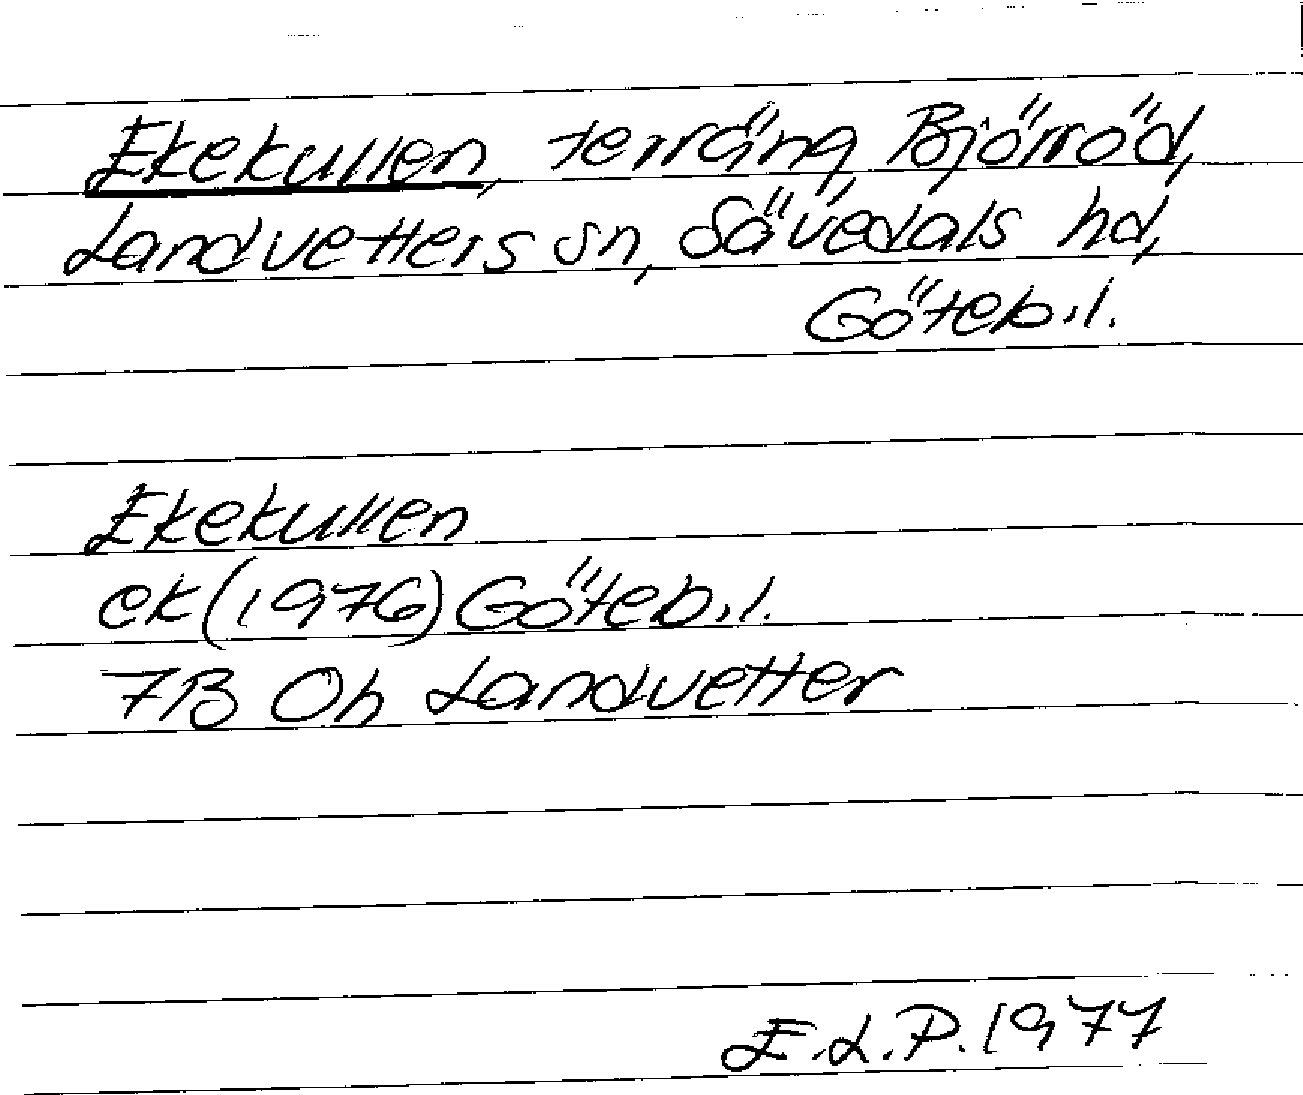 Ekekullen, terräng, Björröd,
Landvetters sn, Sävedals hd,
Göteb.l.
Ekekullen
ek (1976) Göteb.l.
7B 0h Landvetter
E.L.P. 1977